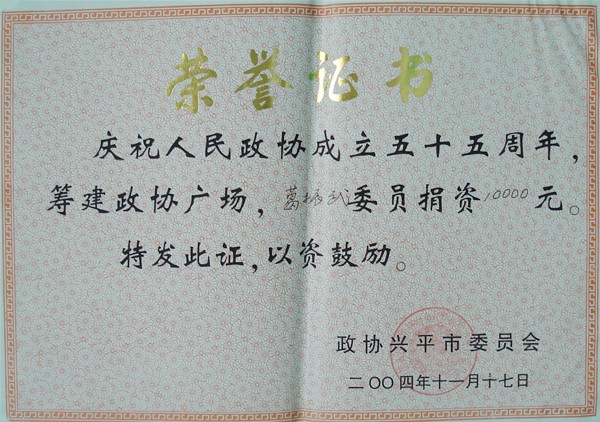 荣誉证书
庆祝人民政协成立五十五周年，
筹建政协广场，葛振武委员捐资10000元。
特发此证，以资鼓励。
政协兴平市委员会
二〇〇四年十一月十七日